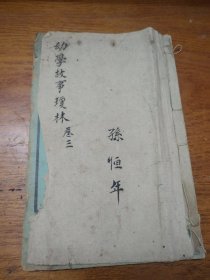 幼學故事瓊林 卷三
孫恒年